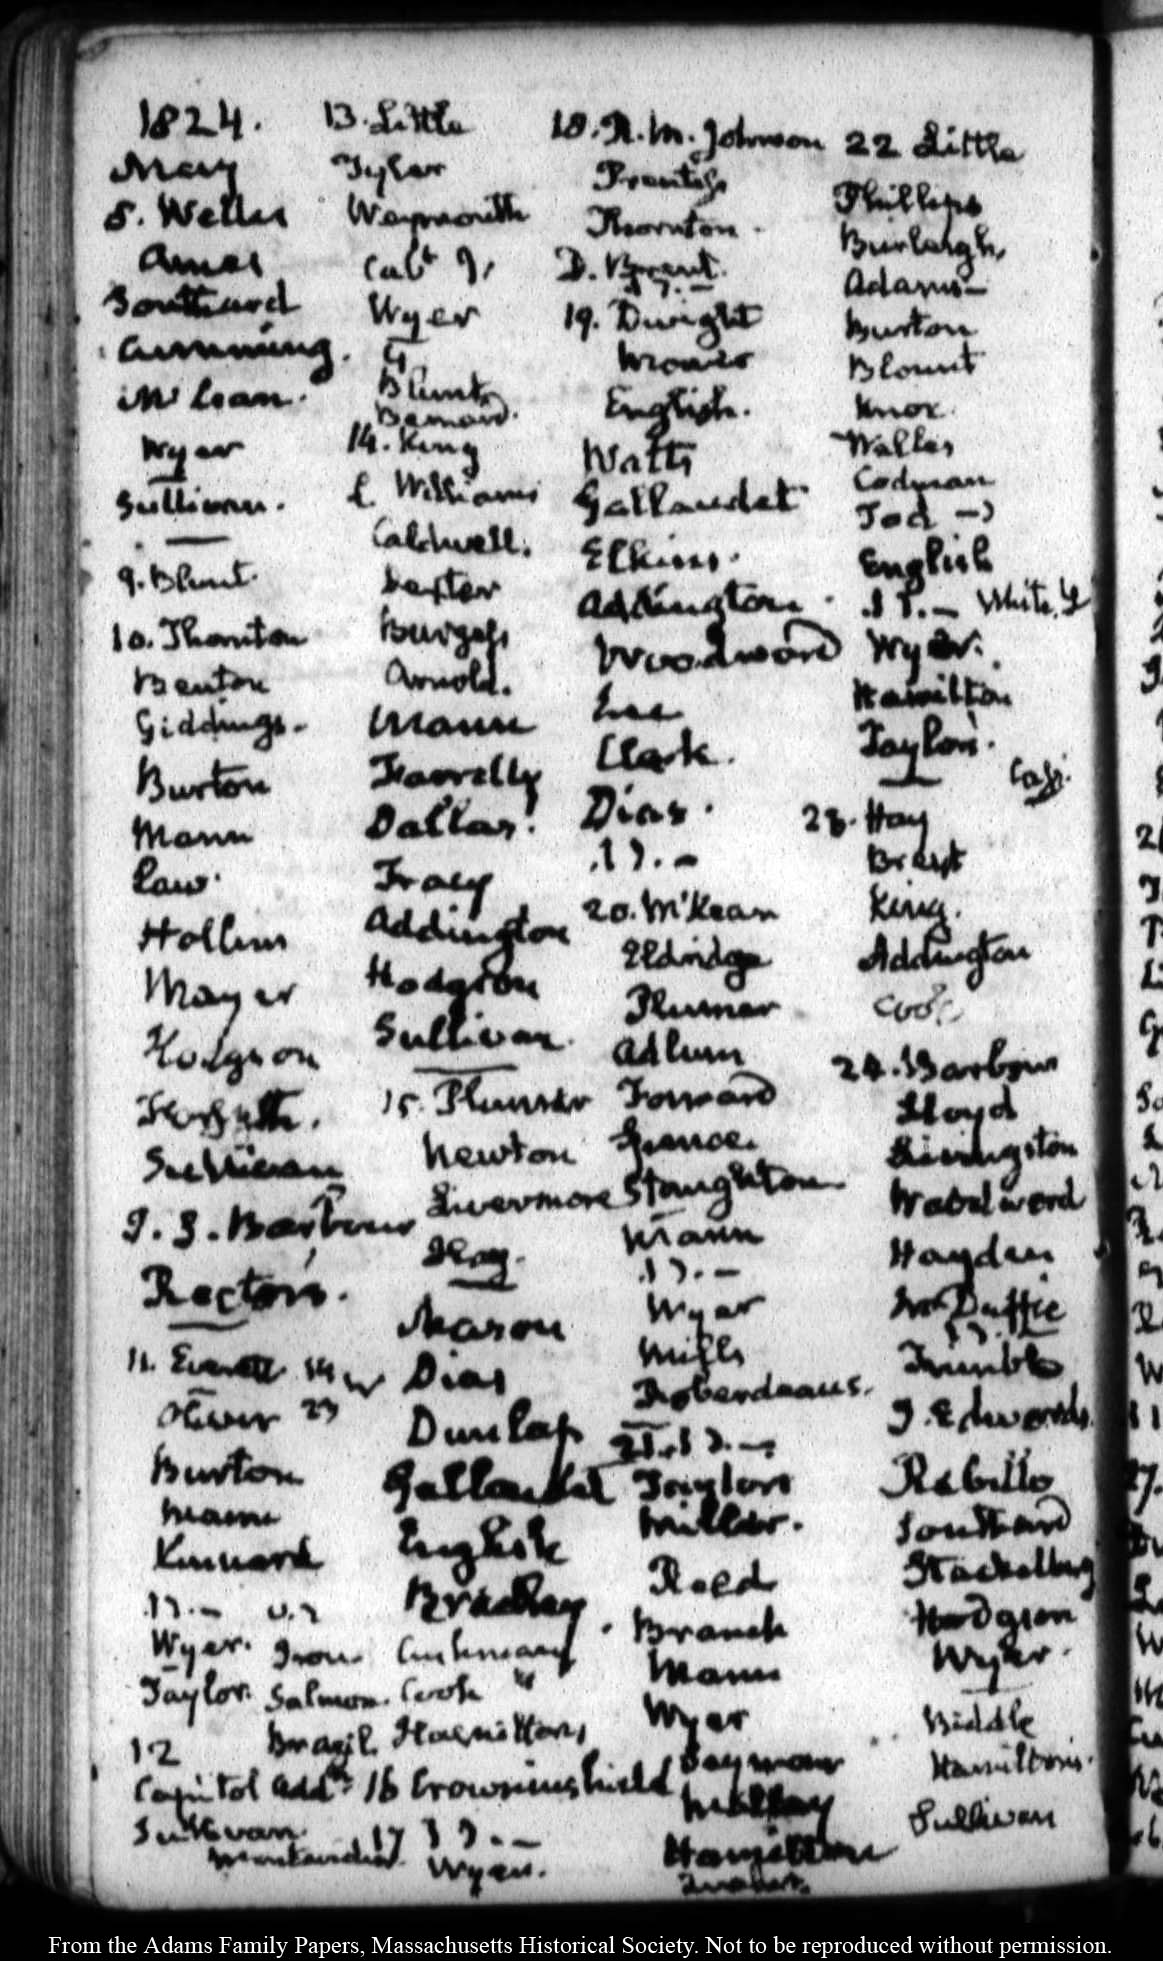 1824.
May
8. Wells
Ames
Southard
Cumming.
McLean.
Wyer
Sullivan.
9. Blunt.
10. Thornton
Benton
Giddings.
Burton
Mann
Law.
Hollins
Mayer
Hodgson
Forsyth.
Sullivan
J. S. Barbour
Rector's.
11. Everett 14
Oliver 23
Burton
Mann
Kinnard
Wyer.
Taylor. Salmon.
12 Brazil
Capitol Addn
Sullivan.
13. Little
Tyler
Weymouth
Cabt
Wyer
Blunt
Bernard.
14. King
L Williams
Caldwell.
Lester
Burgess
Arnold.
Mann
Farrelly
Dallas.
Tracy
Addington
Hodgson
Sullivan.
15. Plumer
Newton
Livermore
Hay.
Mason
Dias
Dunlap
Gallaudet
English
Bradley
Cushman
Cook "
Hamiltons
16 Crowninshield
17
Wyer.
18. R. M. Johnson
Prentiss
Thornton.
D. Brent.
19. Dwight
Mower
English.
Watts
Gallaudet
Elkins.
Addington.
Woodward
Lee
Clark.
Dias.
20. McKean
Eldridge
Plumer
Adlum
Forward
Spence.
Stoughton
Mann
Wyer
Mills
Roberdeaus.
21.
Taylor
Miller.
Reed
Branch
Mann
Wyer
Seymour
Mallary
Hamilton
22 Little
Phillips
Burleigh,
Adams
Burton
Blount
Knox.
Walles
Codman
Tod
English
White. Y
Wyer.
Hamilton
Taylor.
23. Hay
Brent
King.
Addington
Cook
24. Barbour
Lloyd
Livingston
Woodward
Hayden
McDuffie
Trimble
J. Edwards.
Rebello
Southard
Stackelberg
Hodgson
Wyer.
Biddle
Hamiltons.
Sullivan
From the Adams Family Papers, Massachusetts Historical Society. Not to be reproduced without permission.